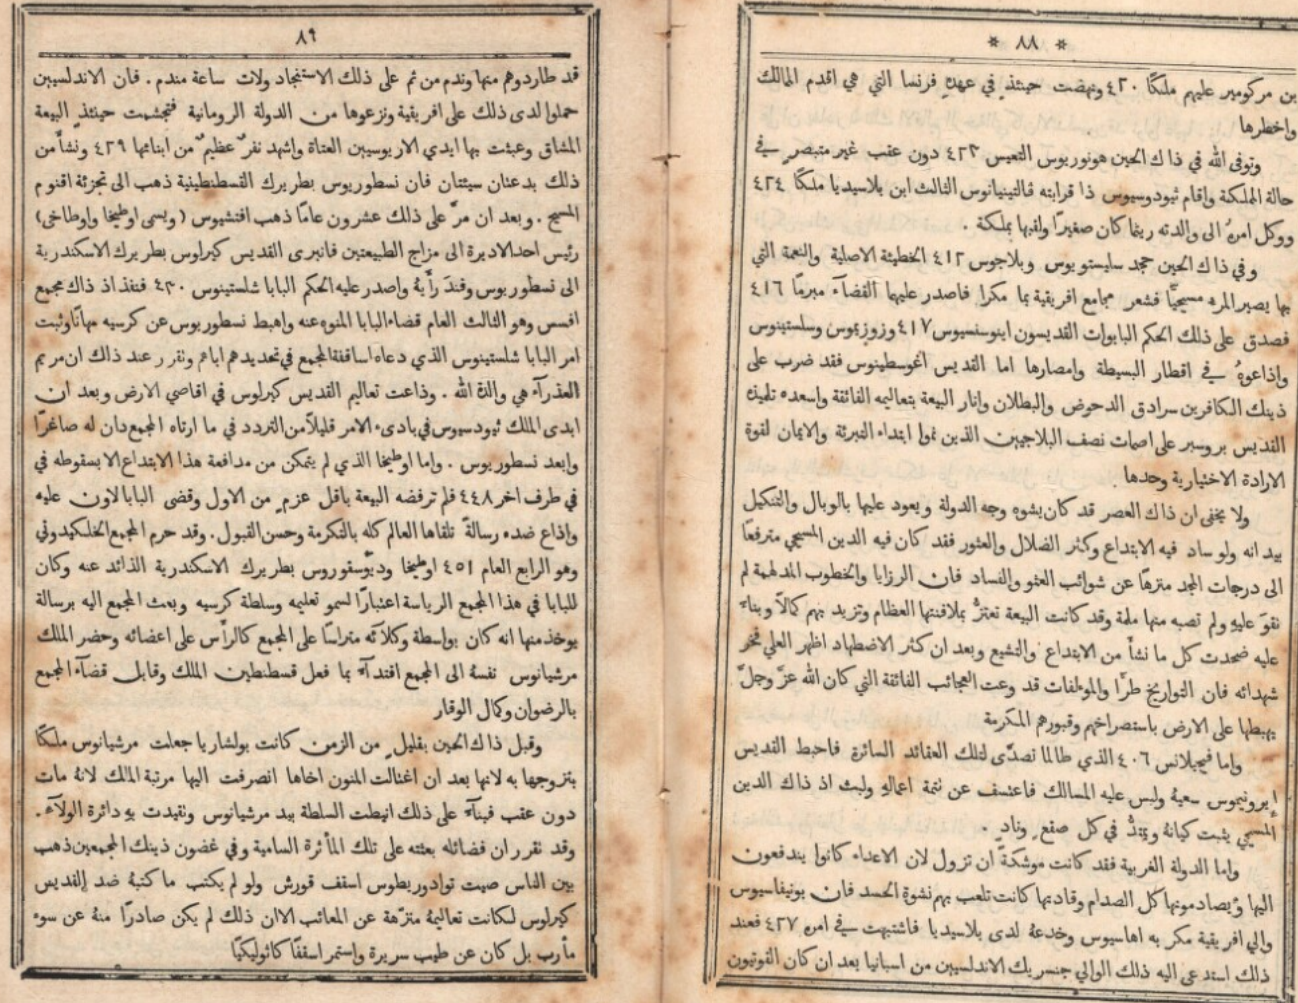 * ٨٨ *
بن مركومير عليهم ملكًا ٤٢٠ ونهضت حينئذٍ في عهدهِ فرنسا التي هي اقدم الممالك
واخطرها
وتوفى الله في ذاك الحين هونوريوس التعيس ٤٢٣ دون عقب غير متبصر في
حالة المملكة واقام ثيودوسيوس ذا قرابته فالنتينيانوس الثالث ابن بلاسيديا ملكًا ٤٢٤
ووكل امرهُ الى والدته ريثما كان صغيرًا ولقبها بملكة .
وفي ذاك الحين جحد سليستويوس وبلاجوس ٤١٢ الخطيئة الاصلية والنعمة التي
بها يصير المرء مسيحيًّا فشعر مجامع افريقية بما مكرا فاصدر عليهما القضآء مبرمًا ٤١٦
فصدق على ذلك الحكم البابوات القديسون اينوسنسيوس ٤١٧ وزوزيموس وسلستينوس
واذاعوهُ في اقطار البسيطة وامصارها اما القديس اغوسطينوس فقد ضرب على
ذينك الكافرين سرادق الدحوض والبطلان وانار البيعة بتعاليمه الفائقة واسعده تلميذه
القديس بروسبر على اصمات نصف البلاجيين الذين نموا ابتداء التبرئة والايمان لقوة
الارادة الاختيارية وحدها
ولا يخفى ان ذاك العصر قد كان يشوه وجه الدولة ويعود عليها بالوبال والتنكيل
بيد انه ولو ساد فيه الابتداع وكثر الضلال والعثور فقد كان فيه الدين المسيحي مترفعًا
الى درجات المجد متزهًا عن شوائب العثو والفساد فان الرزايا والخطوب المدلهمة لم
تقوَ عليهِ ولم تصبه منها ملمة وقد كانت البيعة تعتزُّ بملافنتها العظام وتزيد بهم كمالًا وبناءً
عليه ضحدت كل ما نشأ من الابتداع والتشيع وبعد ان كثر الاضطهاد اظهر العلي فخر
شهدائه فان التواريخ طرًّا والمولفات قد وعت العجائب الفائقة التي كان الله عزَّ وجلَّ
يهبطها على الارض باستصراخهم وقبورهم المكرمة
واما فيجيلانس ٤٠٦ الذي طالما تصدَّى لتلك العقائد السائرة فاحبط القديس
إيرونيموس سعيهُ ولبس عليه المسالك فاعتسف عن تتمة اعمالهِ ولبث اذ ذاك الدين
المسيحي يثبت كيانهُ ويمتدُّ في كل صقع ٍ ونادٍ .
واما الدولة الغربية فقد كانت موشكة ان تزول لان الاعداء كانوا يندفعون
اليها ويصادمونها كل الصدام وقادتها كانت تلعب بهم نشوة الحسد فان بونيفاسيوس
والي افريقية مكر به اهاسيوس وخدعهُ لدى بلاسيديا فاشتبهت في امره ٤٢٧ فعند
ذلك استدعى اليه ذلك الوالي جنسريك الاندلسيين من اسبانيا بعد ان كان القوتيون
٨٩
قد طاردوهم منها وندم من ثم على ذلك الاستنجاد ولات ساعة مندم . فان الاندلسيين
حملوا لدى ذلك على افريقية ونزعوها من الدولة الرومانية فتجشمت حينئذٍ البيعة
المشاق وعبثت بها ايدي الاريوسيين العتاة واشهد نفرٌ عظيمٌ من ابنائها ٤٢٩ ونشأ من
ذلك بدعتان سيئتان فان نسطوريوس بطريرك القسطنطينية ذهب الى تجزئة اقنوم
المسيح . وبعد ان مرّ على ذلك عشرون عامًا ذهب افتشيوس (ويسمى اوطيخا واوطاخى)
رئيس احد الاديرة الى مزاج الطبيعتين فانبرى القديس كيرلوس بطريرك الاسكندرية
الى نسطوريوس وفندَ رأيهُ واصدر عليه الحكم البابا شلستينوس ٤٣٠ فنفذ اذ ذاك مجمع
افسس وهو الثالث العام قضاء البابا المنوه عنه واهبط نسطوريوس عن كرسيه مهانًا وثبت
امر البابا شلستينوس الذي دعاه اساقفة المجمع في تحديدهم اباهم وتقرر عند ذلك ان مريم
العذرآء هي والدة الله . وذاعت تعاليم القديس كيرلوس في اقاصي الارض وبعد ان
ابدى الملك ثيودسيوس في بادىء الامر قليلًا من التردد في ما ارتاه المجمع دان له صاغرًا
وابعد نسطوريوس . واما اوطيخا الذي لم يتمكن من مدافعة هذا الابتداع الا بسقوطه في
في طرف اخر ٤٤٨ فلم ترفضه البيعة باقل عزمٍ من الاول وقضى البابا لاون عليه
واذاع ضده رسالةً تلقاها العالم كله بالتكرمة وحسن القبول . وقد حرم المجمع الخلكيدوني
وهو الرابع العام ٤٥١ اوطيخا وديوسقوروس بطريرك الاسكندرية الذائد عنه وكان
للبابا في هذا المجمع الرياسة اعتبارًا لسمو تعليمه وسلطة كرسيه وبعث المجمع اليه برسالة
يوخذ منها انه كان بواسطة وكلآئه متراسًا على المجمع كالرأس على اعضائه وحضر الملك
مرشيانوس نفسهُ الى المجمع اقتدآءً بما فعل قسطنطين الملك وقابل قضآء المجمع
بالرضوان وكمال الوقار
وقبل ذاك الحين بقليلٍ من الزمن كانت بولشاريا جعلت مرشيانوس ملكًا
بتزوجها به لانها بعد ان اغتالت المنون اخاها انصرفت اليها مرتبة المالك لانهُ مات
دون عقب فبنآءً على ذلك انيطت السلطة بيد مرشيانوس وتقيدت بهِ دائرة الولآء .
وقد تقرر ان فضائله بعثته على تلك المأثرة السامية وفي غضون ذينك المجمعين ذهب
بين الناس صيت توادوريطوس اسقف قورش ولو لم يكتب ما كتبهُ ضد القديس
كيرلوس لكانت تعاليمهُ متنزّهة عن المعائب الا ان ذلك لم يكن صادرًا منهُ عن سوء
مأرب بل كان عن طيب سريرة واستمر اسقفًا كاثوليكيًا